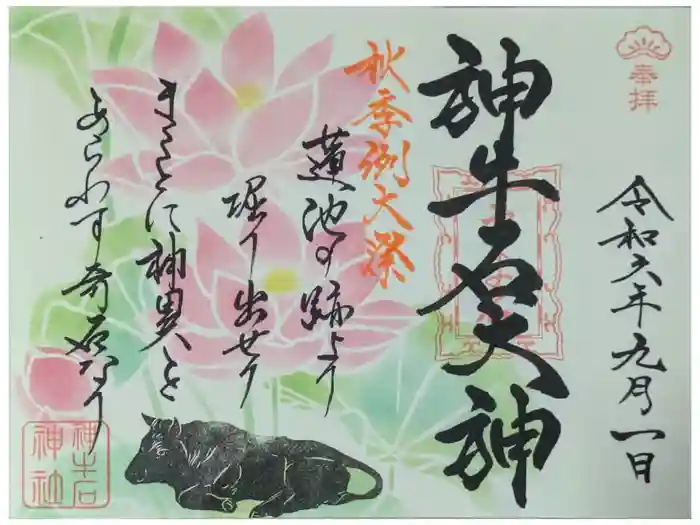 奉拝
令和六年九月一日
神牛石大神
秋季例大祭
蓮池の跡より
堀り出せり
まことに神異を
あらわす奇石なり
神牛石
神社